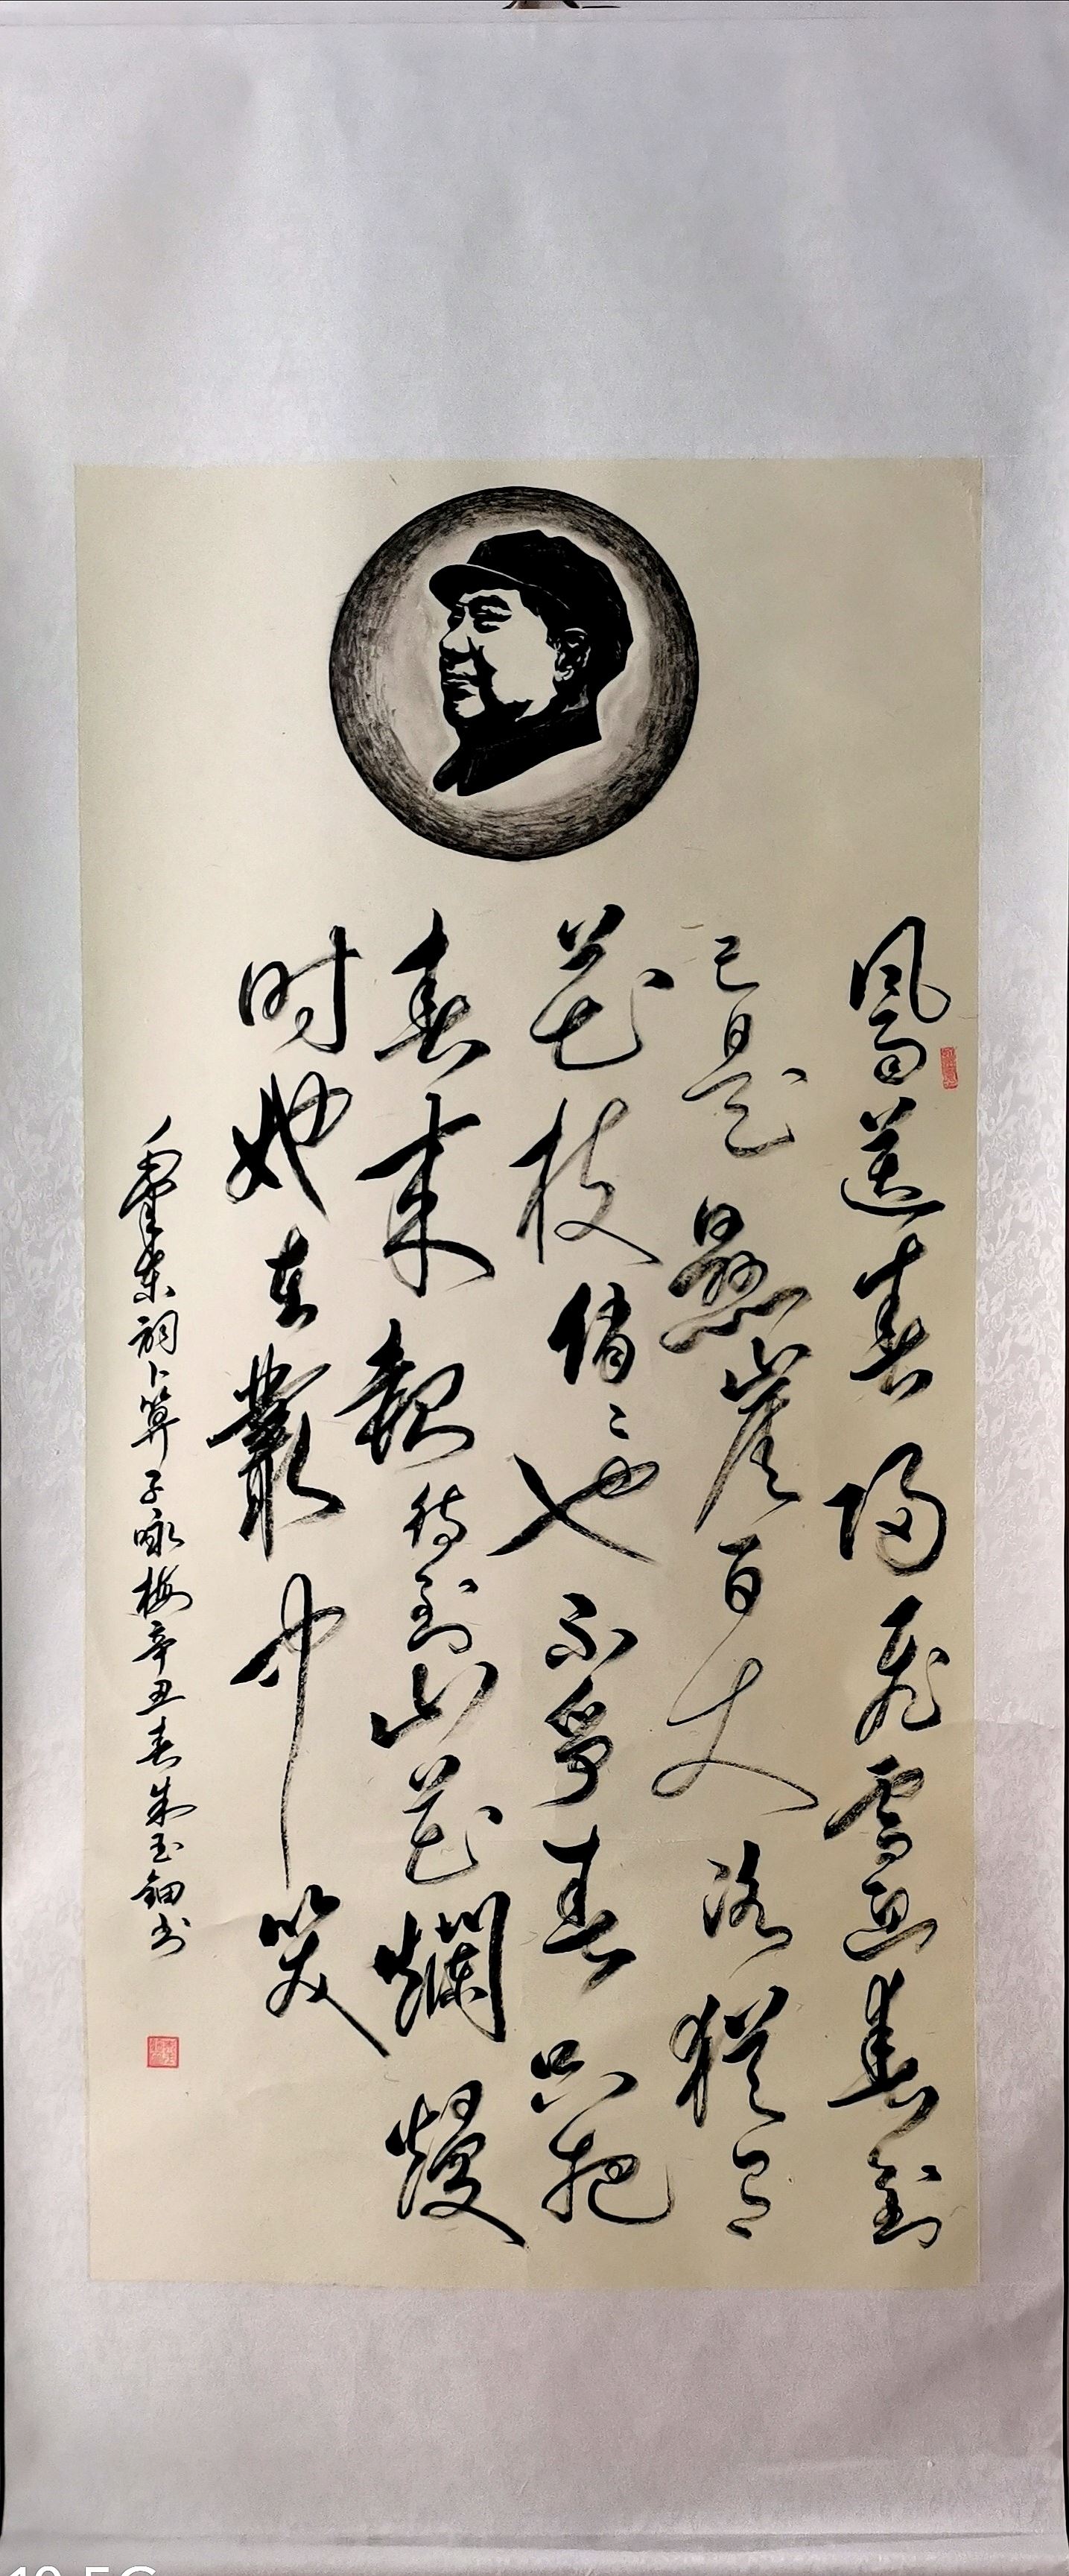 風雨送春歸飛雪迎春到
已是懸崖百丈冰猶有
花枝俏〻也不爭春只把
春來報待到山花爛熳
时她在叢中笑
毛澤東詞卜算子咏梅辛丑春朱玉鈿书